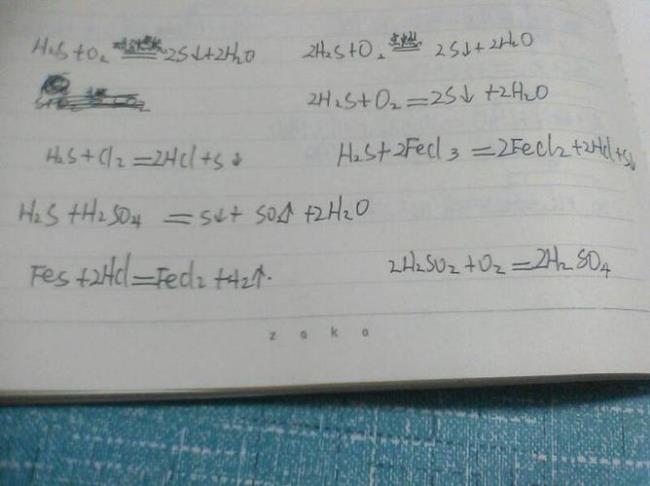 H₂S + O₂ == 2S↓ + 2H₂O 2H₂S + O₂ == 2S↓ + 2H₂O
2H₂S + O₂ = 2S↓ + 2H₂O
H₂S + Cl₂ = 2HCl + S↓ H₂S + 2FeCl₃ = 2FeCl₂ + 2HCl + S↓
H₂S + H₂SO₄ = S↓ + SO₂↑ + 2H₂O
FeS + 2HCl = FeCl₂ + H₂↑. 2H₂SO₂ + O₂ = 2H₂SO₄
z a k a